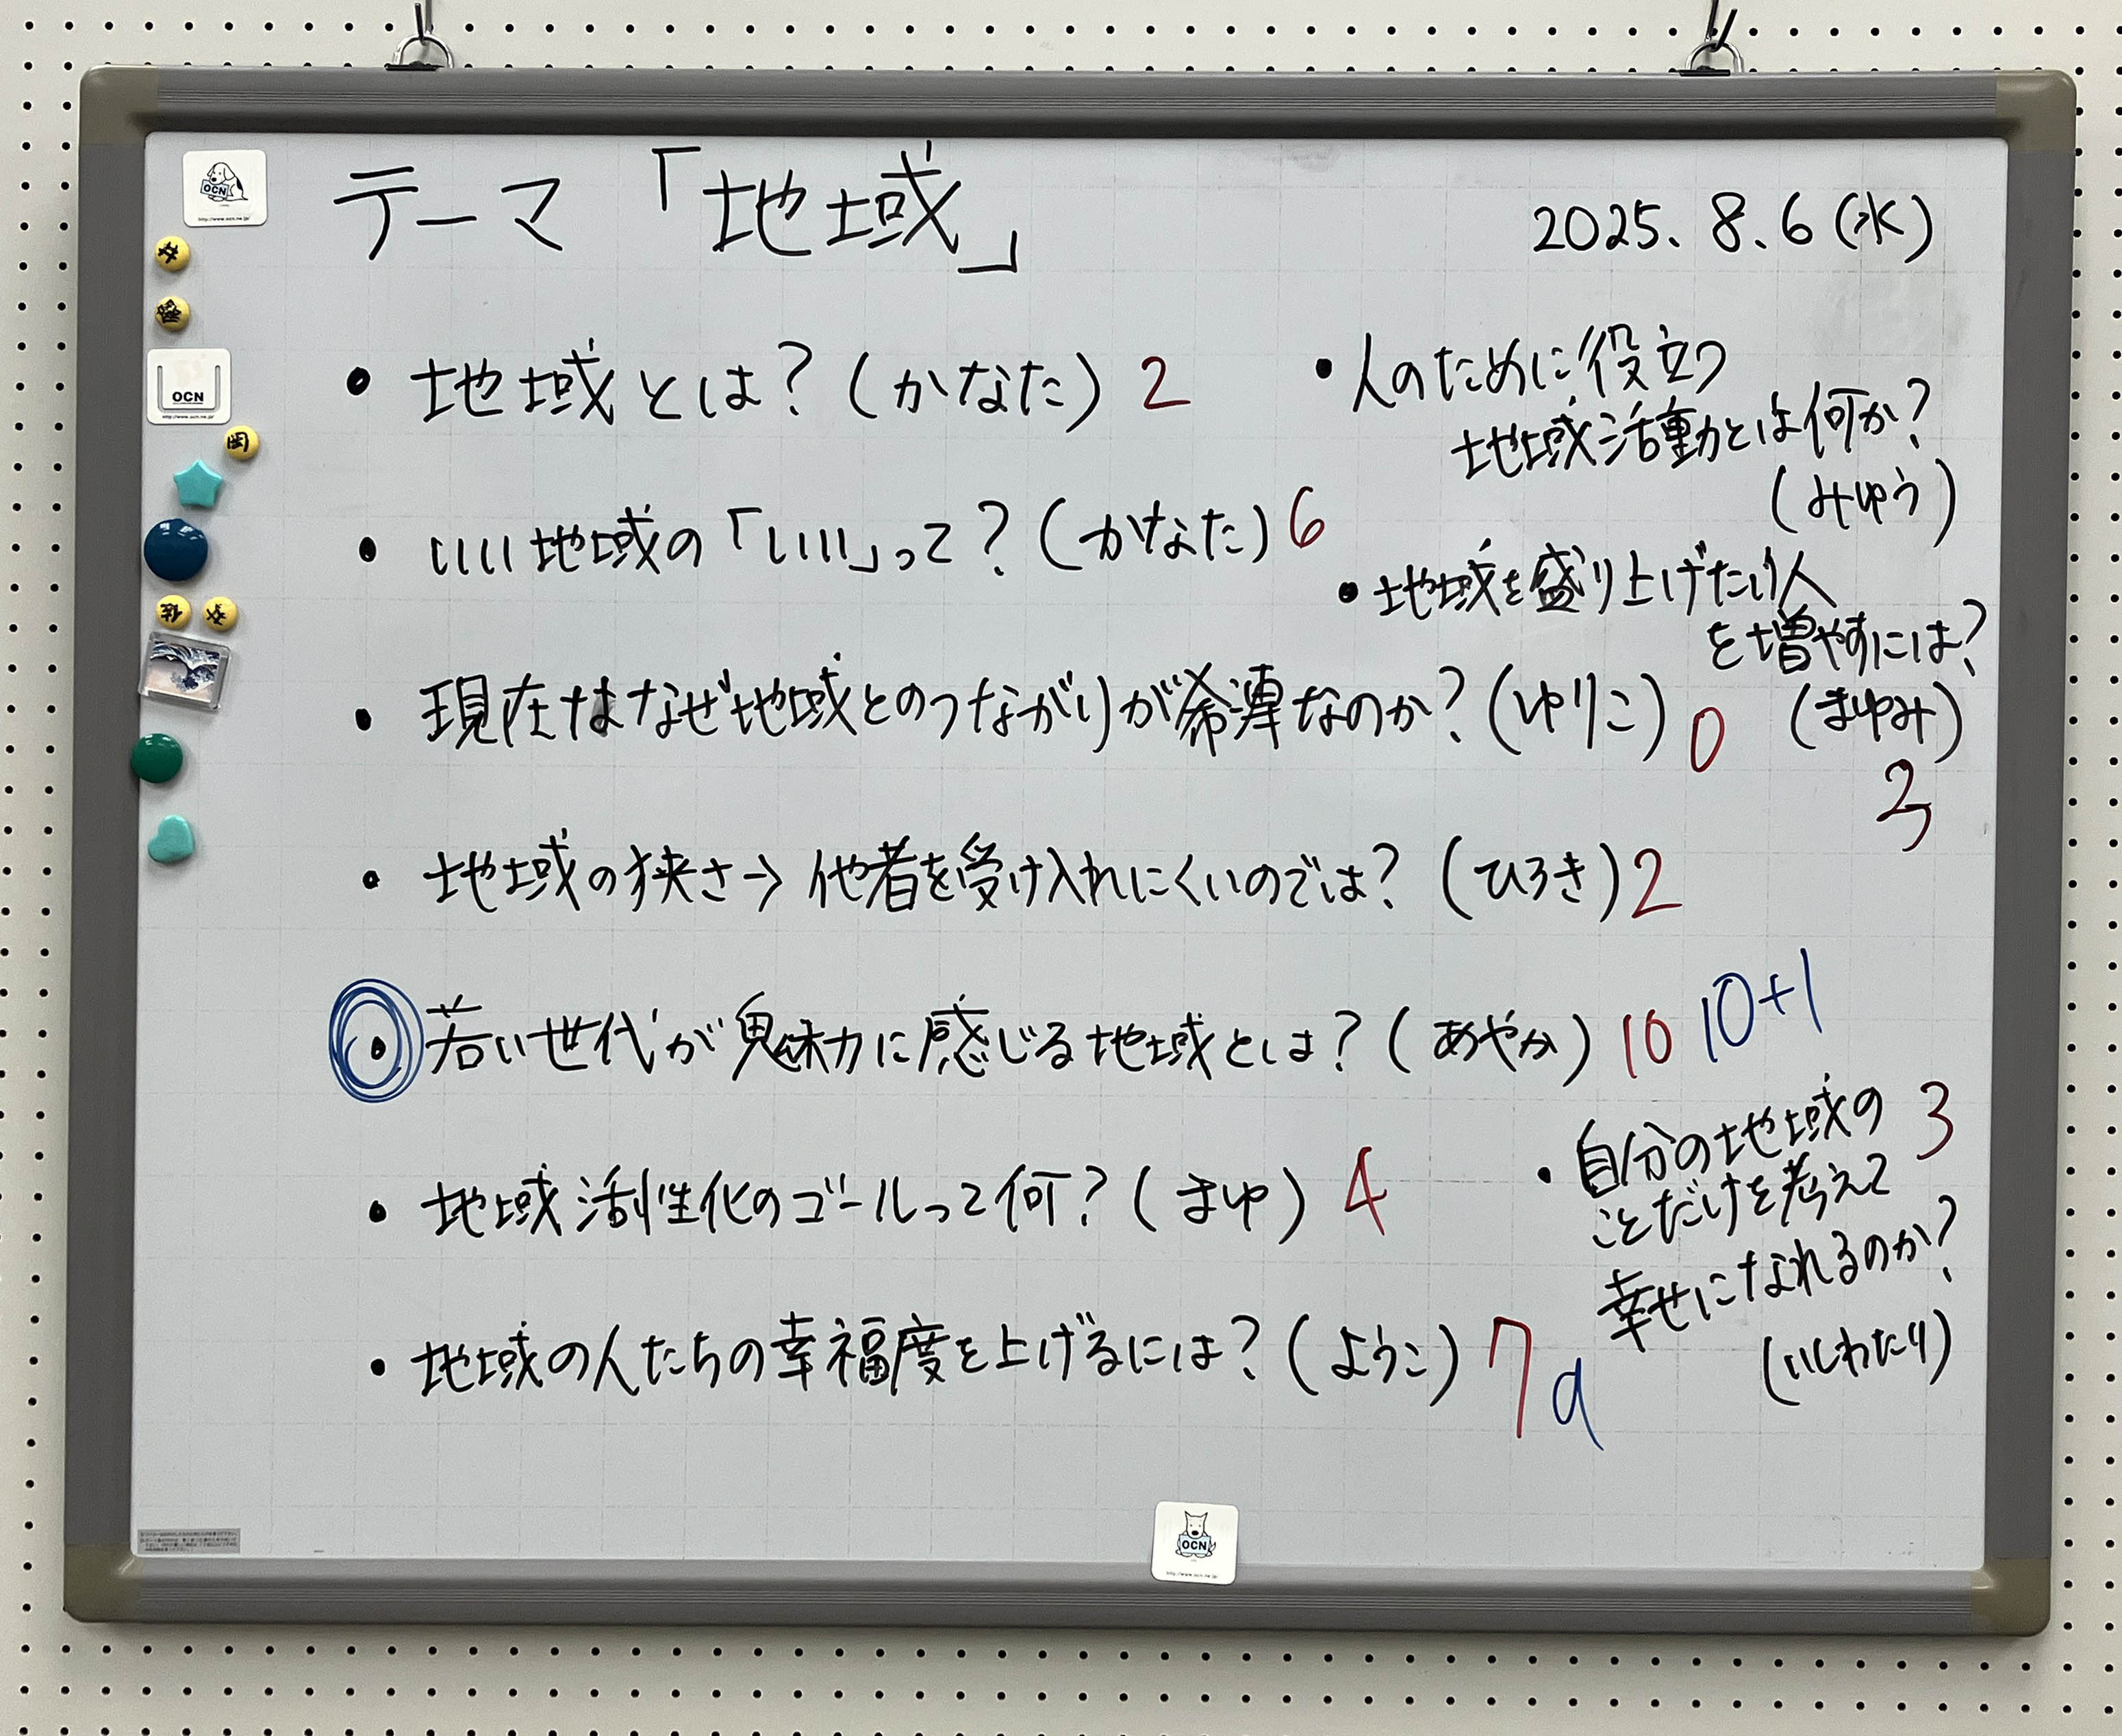 テーマ「地域」
2025.8.6(水)
・地域とは?(かなた)2
・いい地域の「いい」って?(かなた)6
・現在はなぜ地域とのつながりが希薄なのか?(ゆりこ)0
・地域の狭さ→他者を受け入れにくいのでは?(ひろき)2
・若い世代が魅力に感じる地域とは?(あやか)10 10+1
・地域活性化のゴールって何?(まゆ)4
・地域の人たちの幸福度を上げるには?(ようこ)7 9
・人のために役立つ
地域活動とは何か?
(みゆう)
・地域を盛り上げたい人
を増やすには?
(まゆみ)
・自分の地域の 3
ことだけを考えて
幸せになれるのか?
(いしわたり)
OCN
http://www.ocn.ne.jp/
OCN
http://www.ocn.ne.jp/
岡
佐
OCN
http://www.ocn.ne.jp/